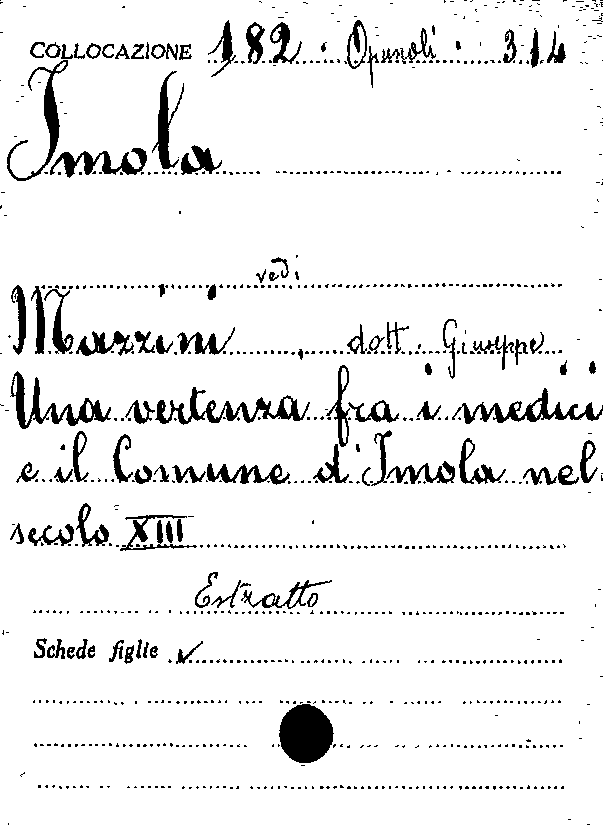 COLLOCAZIONE 182 · Opuscoli · 314
Imola
vedi
Mazzini, dott. Giuseppe
Una vertenza fra i medici
e il Comune d'Imola nel
secolo XIII
Estratto
Schede figlie ✓